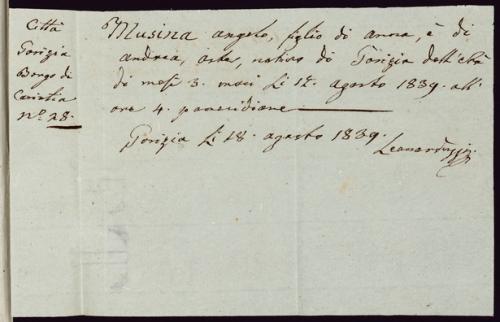 Città
Gorizia
Borgo di
Carintia
nº. 28.
Musina angelo, figlio di anna, è di
andrea, oste, nativo di Gorizia dell'età
di mesi 3. morì li 17. agosto 1839. all'
ore 4. pomeridiane
Gorizia li 18. agosto 1839.